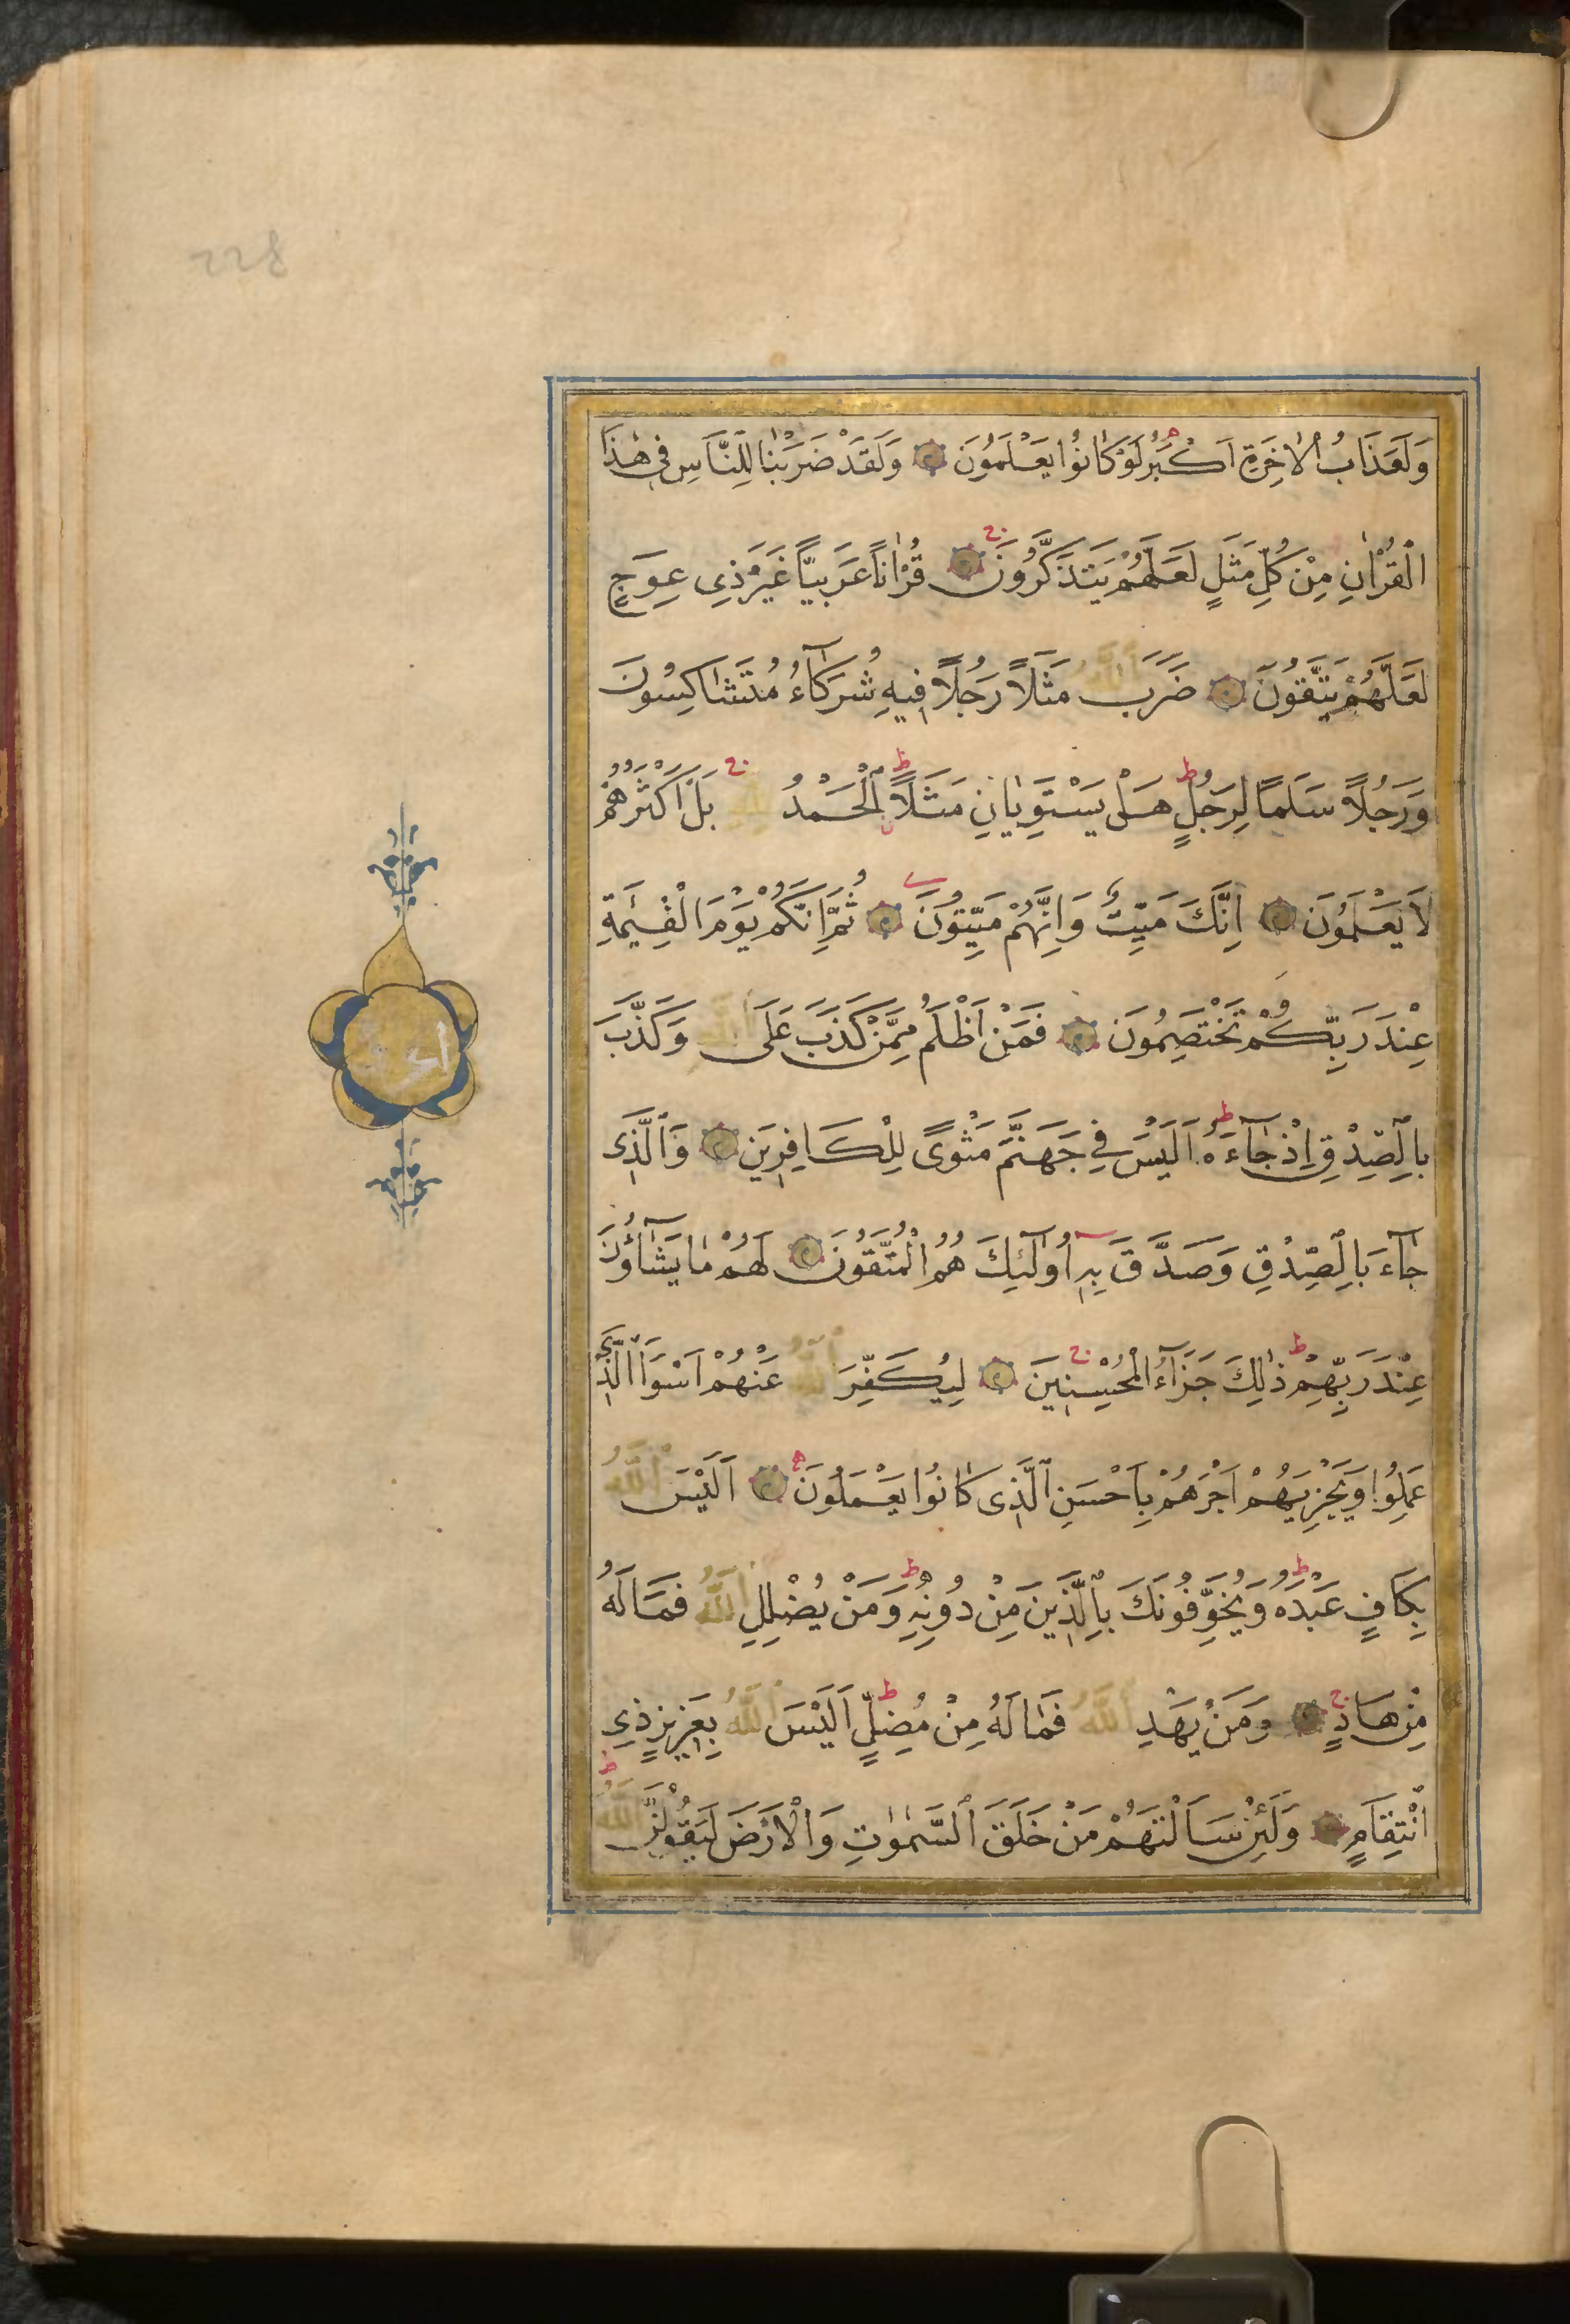 وَلَعَذَابُ الْاٰخِرَةِ اَكْبَرُ لَوْ كَانُوا يَعْلَمُونَ وَلَقَدْ ضَرَبْنَا لِلنَّاسِ فِي هٰذَا
الْقُرْاٰنِ مِنْ كُلِّ مَثَلٍ لَعَلَّهُمْ يَتَذَكَّرُونَ قُرْاٰنًا عَرَبِيًّا غَيْرَ ذِي عِوَجٍ
لَعَلَّهُمْ يَتَّقُونَ ضَرَبَ اللّٰهُ مَثَلًا رَجُلًا فِيهِ شُرَكَآءُ مُتَشَاكِسُونَ
وَرَجُلًا سَلَمًا لِرَجُلٍ هَلْ يَسْتَوِيَانِ مَثَلًا اَلْحَمْدُ لِلّٰهِ بَلْ اَكْثَرُهُمْ
لَا يَعْلَمُونَ اِنَّكَ مَيِّتٌ وَاِنَّهُمْ مَيِّتُونَ ثُمَّ اِنَّكُمْ يَوْمَ الْقِيٰمَةِ
عِنْدَ رَبِّكُمْ تَخْتَصِمُونَ فَمَنْ اَظْلَمُ مِمَّنْ كَذَبَ عَلَى اللّٰهِ وَكَذَّبَ
بِالصِّدْقِ اِذْ جَآءَهُ اَلَيْسَ فِي جَهَنَّمَ مَثْوًى لِلْكَافِرِينَ وَالَّذِي
جَآءَ بِالصِّدْقِ وَصَدَّقَ بِهِ اُولٰٓئِكَ هُمُ الْمُتَّقُونَ لَهُمْ مَا يَشَآؤُنَ
عِنْدَ رَبِّهِمْ ذٰلِكَ جَزَآءُ الْمُحْسِنِينَ لِيُكَفِّرَ اللّٰهُ عَنْهُمْ اَسْوَاَ الَّذِي
عَمِلُوا وَيَجْزِيَهُمْ اَجْرَهُمْ بِاَحْسَنِ الَّذِي كَانُوا يَعْمَلُونَ اَلَيْسَ اللّٰهُ
بِكَافٍ عَبْدَهُ وَيُخَوِّفُونَكَ بِالَّذِينَ مِنْ دُونِهِ وَمَنْ يُضْلِلِ اللّٰهُ فَمَا لَهُ
مِنْ هَادٍ وَمَنْ يَهْدِ اللّٰهُ فَمَا لَهُ مِنْ مُضِلٍّ اَلَيْسَ اللّٰهُ بِعَزِيزٍ ذِي
انْتِقَامٍ وَلَئِنْ سَاَلْتَهُمْ مَنْ خَلَقَ السَّمٰوَاتِ وَالْاَرْضَ لَيَقُولُنَّ اللّٰهُ